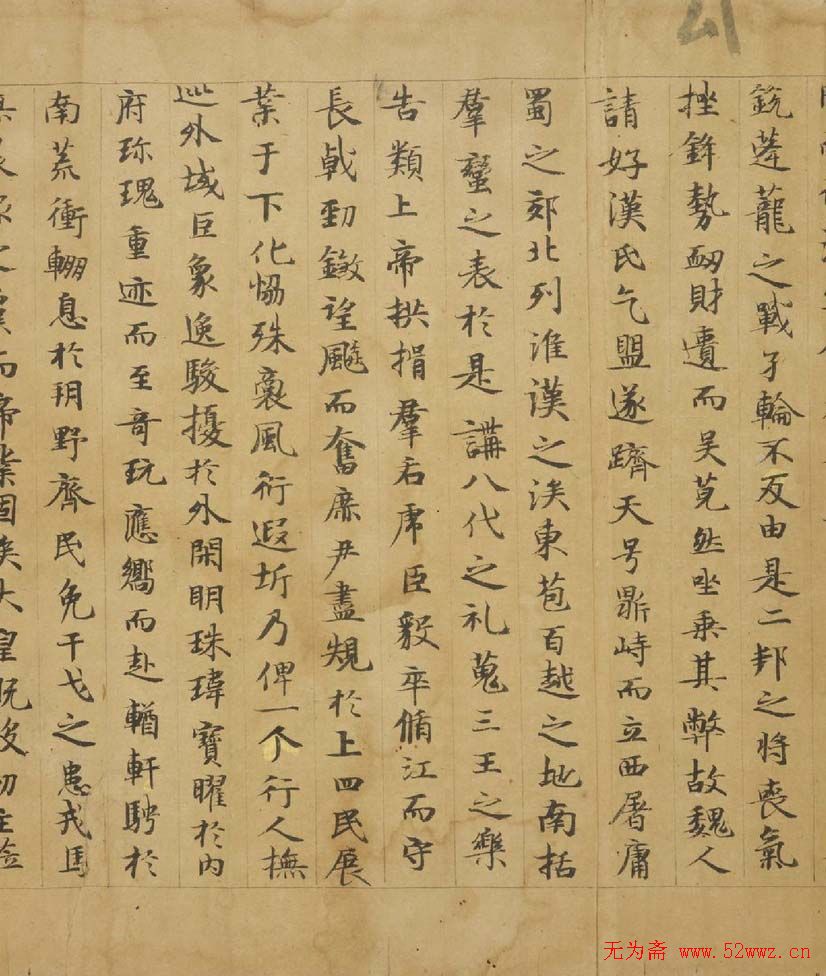 銳蓬蘢之戰孑輪不反由是二邦之将喪氣
挫鋒勢衂財遺而吴莧然坐乗其弊故魏人
請好漢氏乞盟遂躋天号鼎峙而立西屠庸
蜀之郊北列淮漢之涘東苞百越之地南括
羣蠻之表於是講八代之礼蒐三王之樂
告類上帝拱揖羣后虎臣毅卒脩江而守
長戟勁鎩望飇而奮庶尹盡規於上四民展
業于下化恊殊裔風衍遐圻乃俾一个行人撫
巡外域巨象逸駿擾於外閑明珠瑋寳曜於内
府珎瑰重迹而至奇玩應嚮而赴輶軒騁於
南荒衝輣息於朔野齊民免干戈之患戎馬
之虞而帝業固矣大皇既歿幼主莅
无为斋 www.52wwz.cn